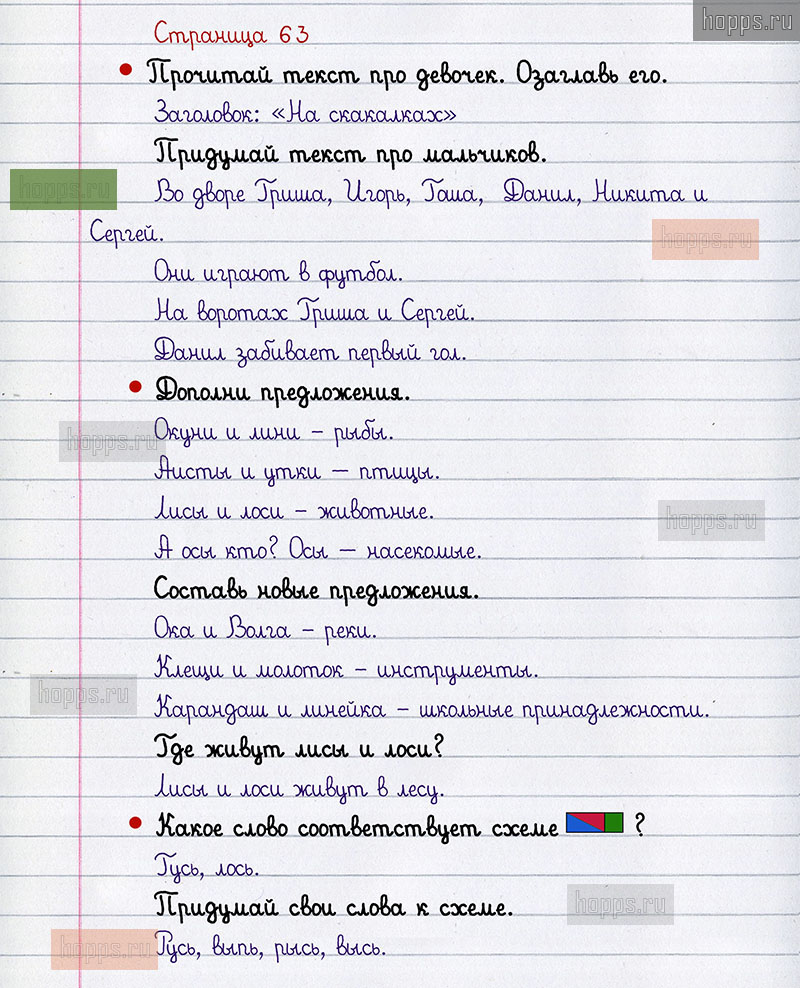 hopps.ru
Страница 63
Прочитай текст про девочек. Озаглавь его.
Заголовок: «На скакалках»
Придумай текст про мальчиков.
hopps.ru
Во дворе Гриша, Игорь, Гоша, Данил, Никита и
Сергей.
hopps.ru
Они играют в футбол.
На воротах Гриша и Сергей.
Данил забивает первый гол.
Дополни предложения.
Окуни и лини – рыбы.
hopps.ru
Аисты и утки – птицы.
Лисы и лоси – животные.
hopps.ru
А осы кто? Осы – насекомые.
Составь новые предложения.
Ока и Волга – реки.
Клещи и молоток – инструменты.
hopps.ru
Карандаш и линейка – школьные принадлежности.
Где живут лисы и лоси?
Лисы и лоси живут в лесу.
Какое слово соответствует схеме ?
Гусь, лось.
Придумай свои слова к схеме.
hopps.ru
Русь, выпь, рысь, высь.
hopps.ru